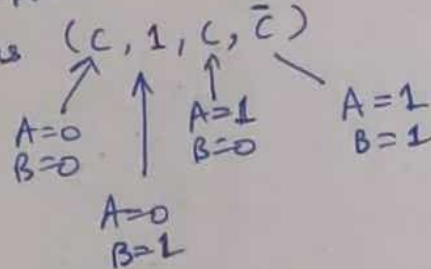 s (C, 1, C, C̅)
A=0
B=0
A=0
B=1
A=1
B=0
A=1
B=1